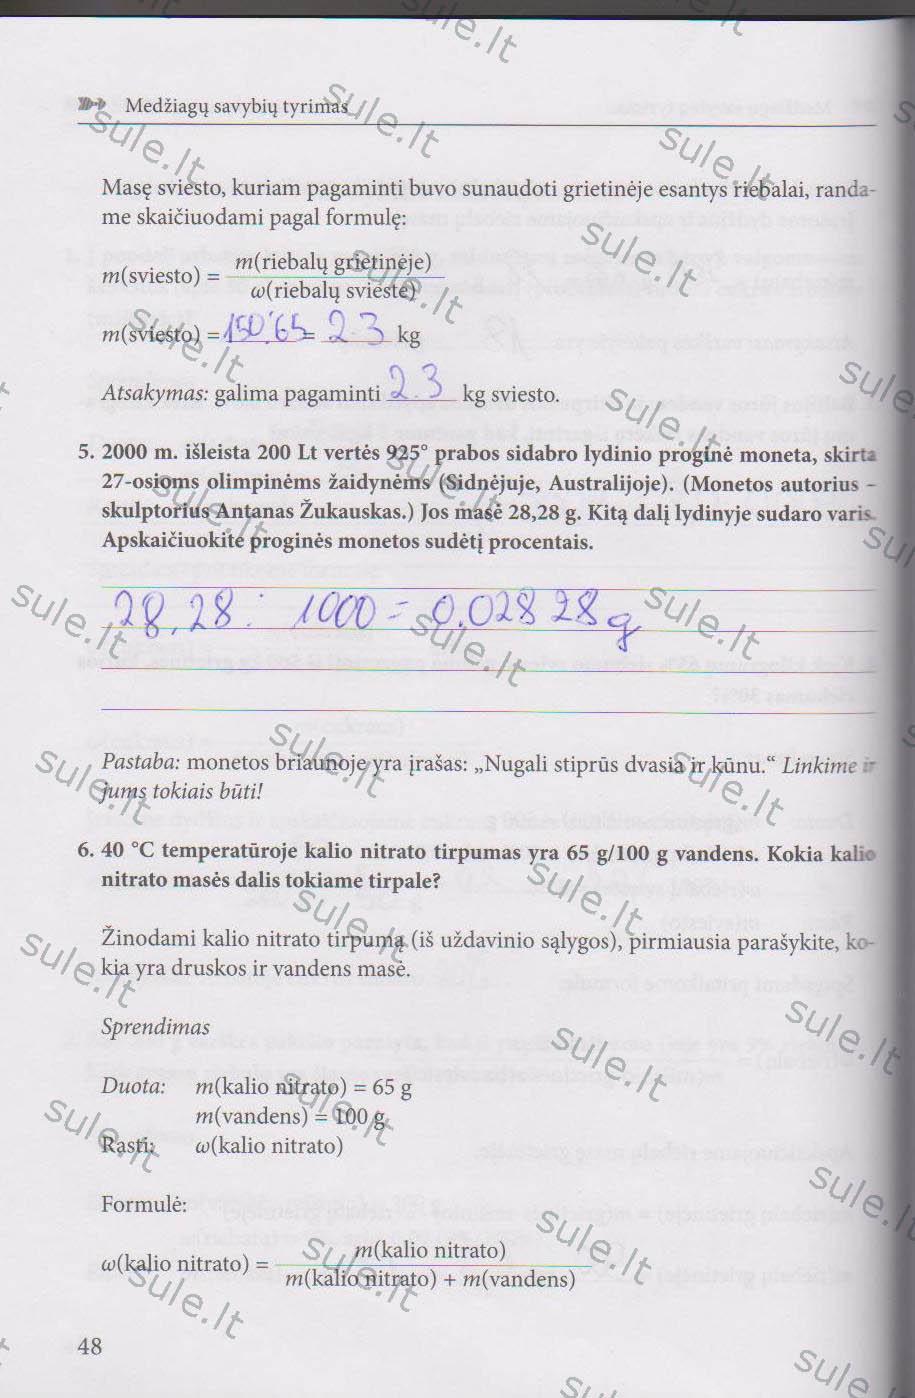 Medžiagų savybių tyrimas
Masę sviesto, kuriam pagaminti buvo sunaudoti grietinėje esantys riebalai, randa-
me skaičiuodami pagal formulę:
m(sviesto) = m(riebalų grietinėje)
ω(riebalų svieste)
m(sviesto) = 150:65 = 2.3 kg
Atsakymas: galima pagaminti 2.3 kg sviesto.
5. 2000 m. išleista 200 Lt vertės 925° prabos sidabro lydinio proginė moneta, skirta
27-osioms olimpinėms žaidynėms (Sidnėjuje, Australijoje). (Monetos autorius –
skulptorius Antanas Žukauskas.) Jos masė 28,28 g. Kitą dalį lydinyje sudaro varis.
Apskaičiuokite proginės monetos sudėtį procentais.
28,28 : 1000 = 0.02828 g
Pastaba: monetos briaunoje yra įrašas: „Nugali stiprūs dvasia ir kūnu.“ Linkime ir
jums tokiais būti!
6. 40 °C temperatūroje kalio nitrato tirpumas yra 65 g/100 g vandens. Kokia kalio
nitrato masės dalis tokiame tirpale?
Žinodami kalio nitrato tirpumą (iš uždavinio sąlygos), pirmiausia parašykite, ko-
kia yra druskos ir vandens masė.
Sprendimas
Duota: m(kalio nitrato) = 65 g
m(vandens) = 100 g
Rasti: ω(kalio nitrato)
Formulė:
ω(kalio nitrato) = m(kalio nitrato)
m(kalio nitrato) + m(vandens)
48